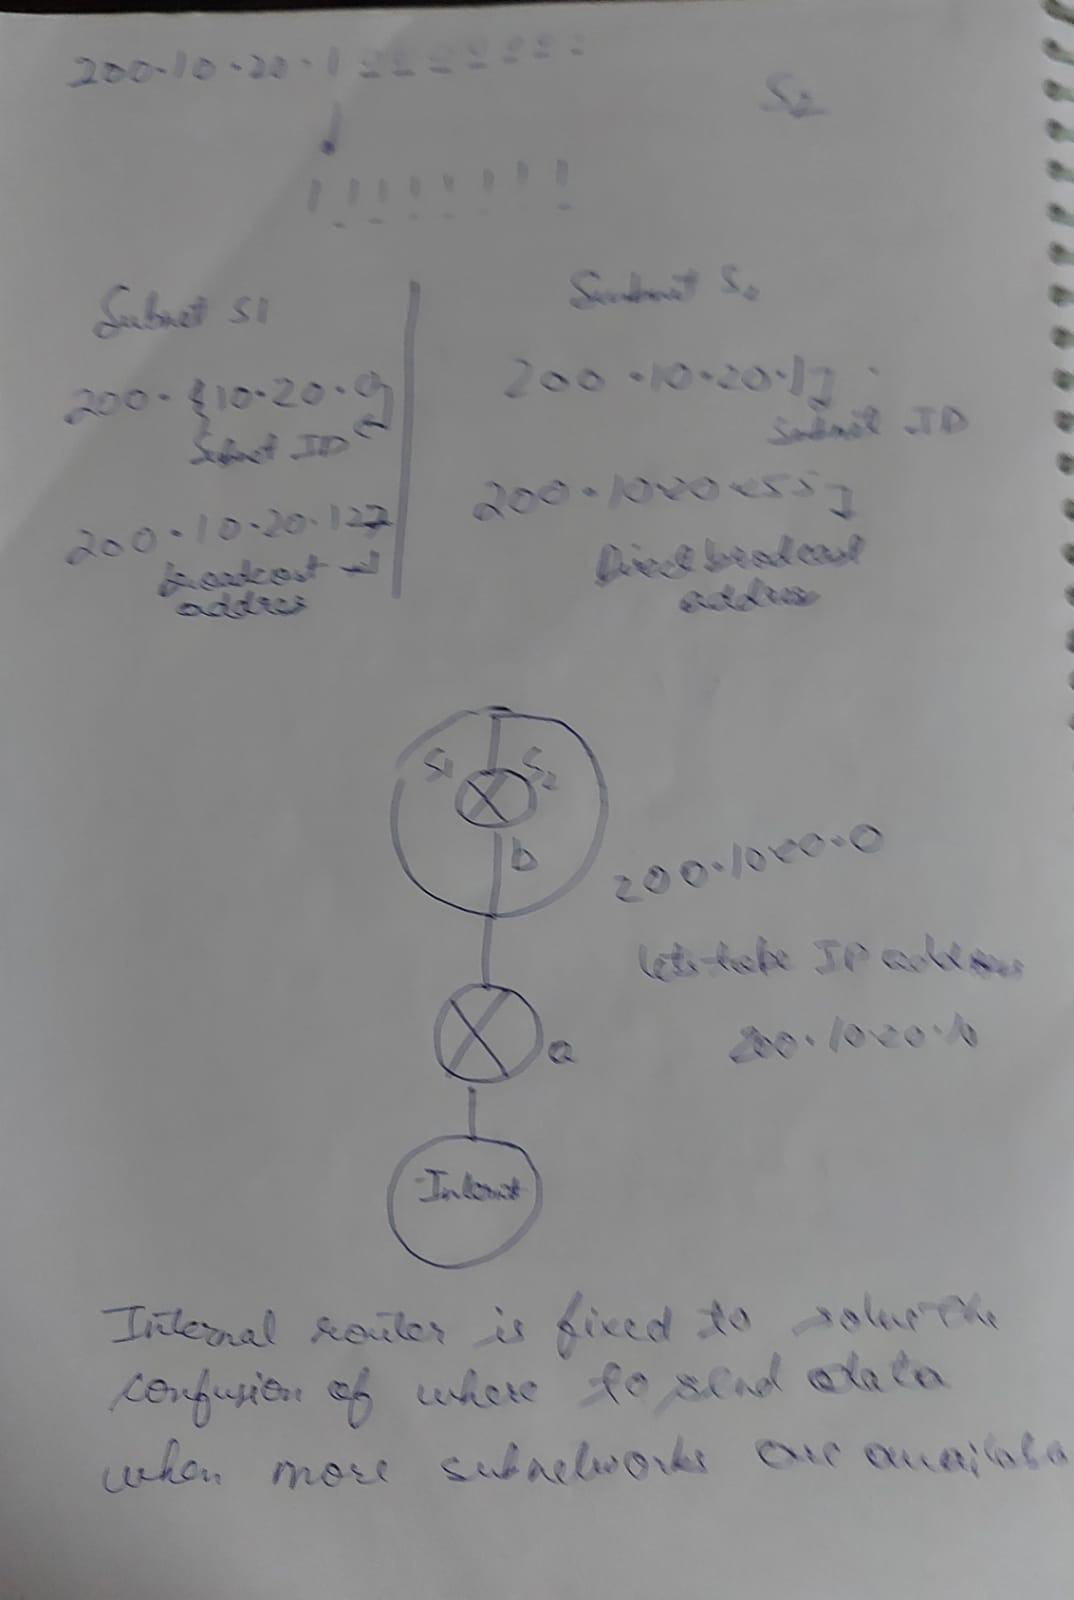 200.10.20.1 _ _ _ _ _ _ _
S2
1 1 1 1 1 1 1 1
Subnet S1
200.{10.20.0}
Subnet ID
200.10.20.127
broadcast
address
Subnet S2
200.10.20.1
Subnet ID
200.10.20.255
Direct broadcast
address
S1 S2
b
200.10.20.0
lets take IP address
200.10.20.10
a
Internet
Internal router is fixed to solve the
confusion of where to send data
when more subnetworks are